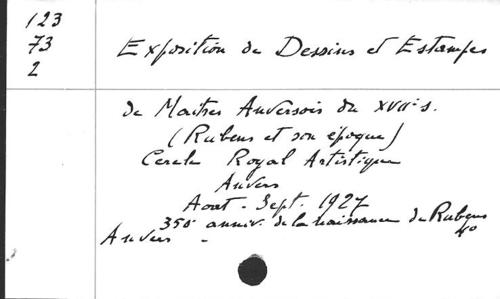 123
73
2
Exposition de Dessins et Estampes
de Maitres Anversois du XVIIe s.
(Rubens et son époque)
Cercle Royal Artistique
Anvers
Aout. Sept. 1927
350e anniv. de la naissance de Rubens
Anvers -